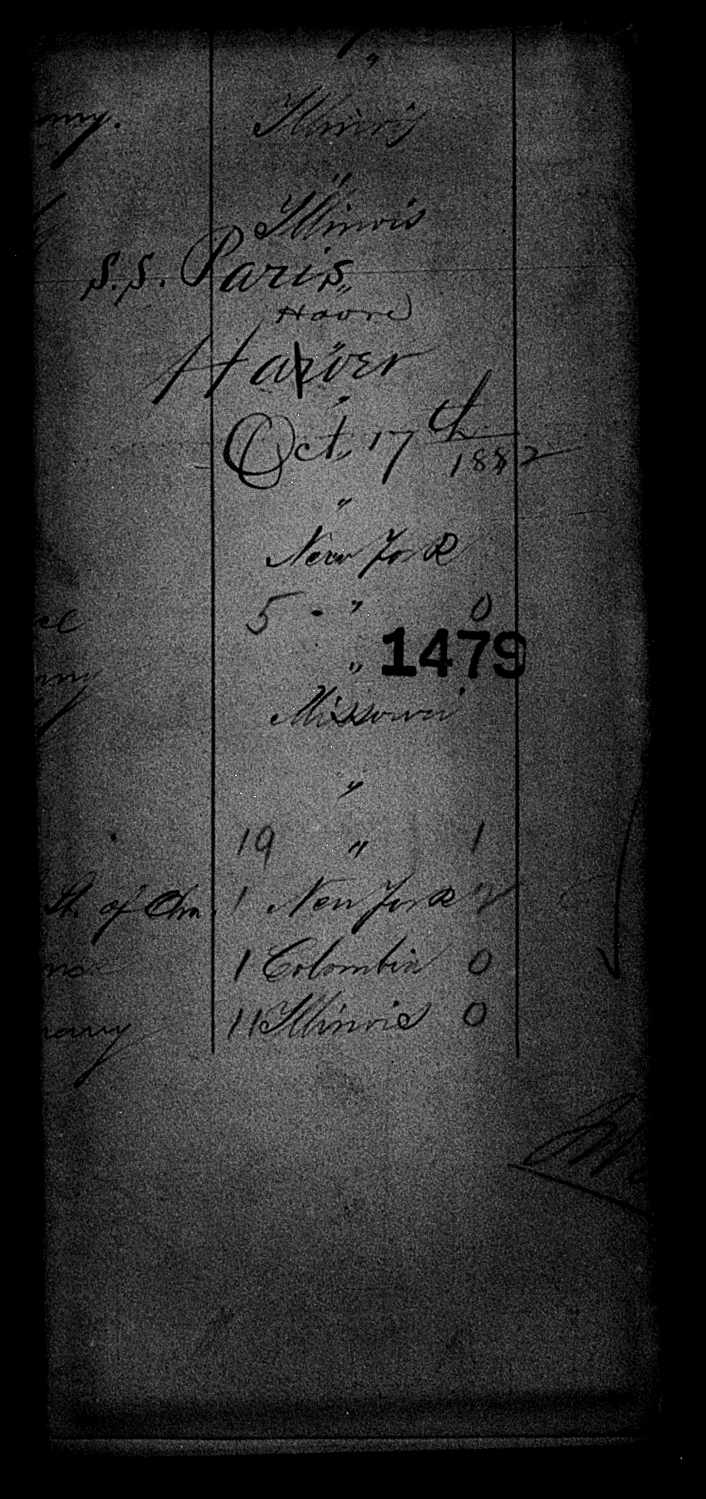 "
Illinois
"
Illinois
S.S. Paris
"
Havre
Harver
"
Oct. 17th
1882
"
New York
5 - " 0
1479
"
Missouri
"
19 " 1
of Chn. 1 New York
1 Colombia 0
11 Illinois 0